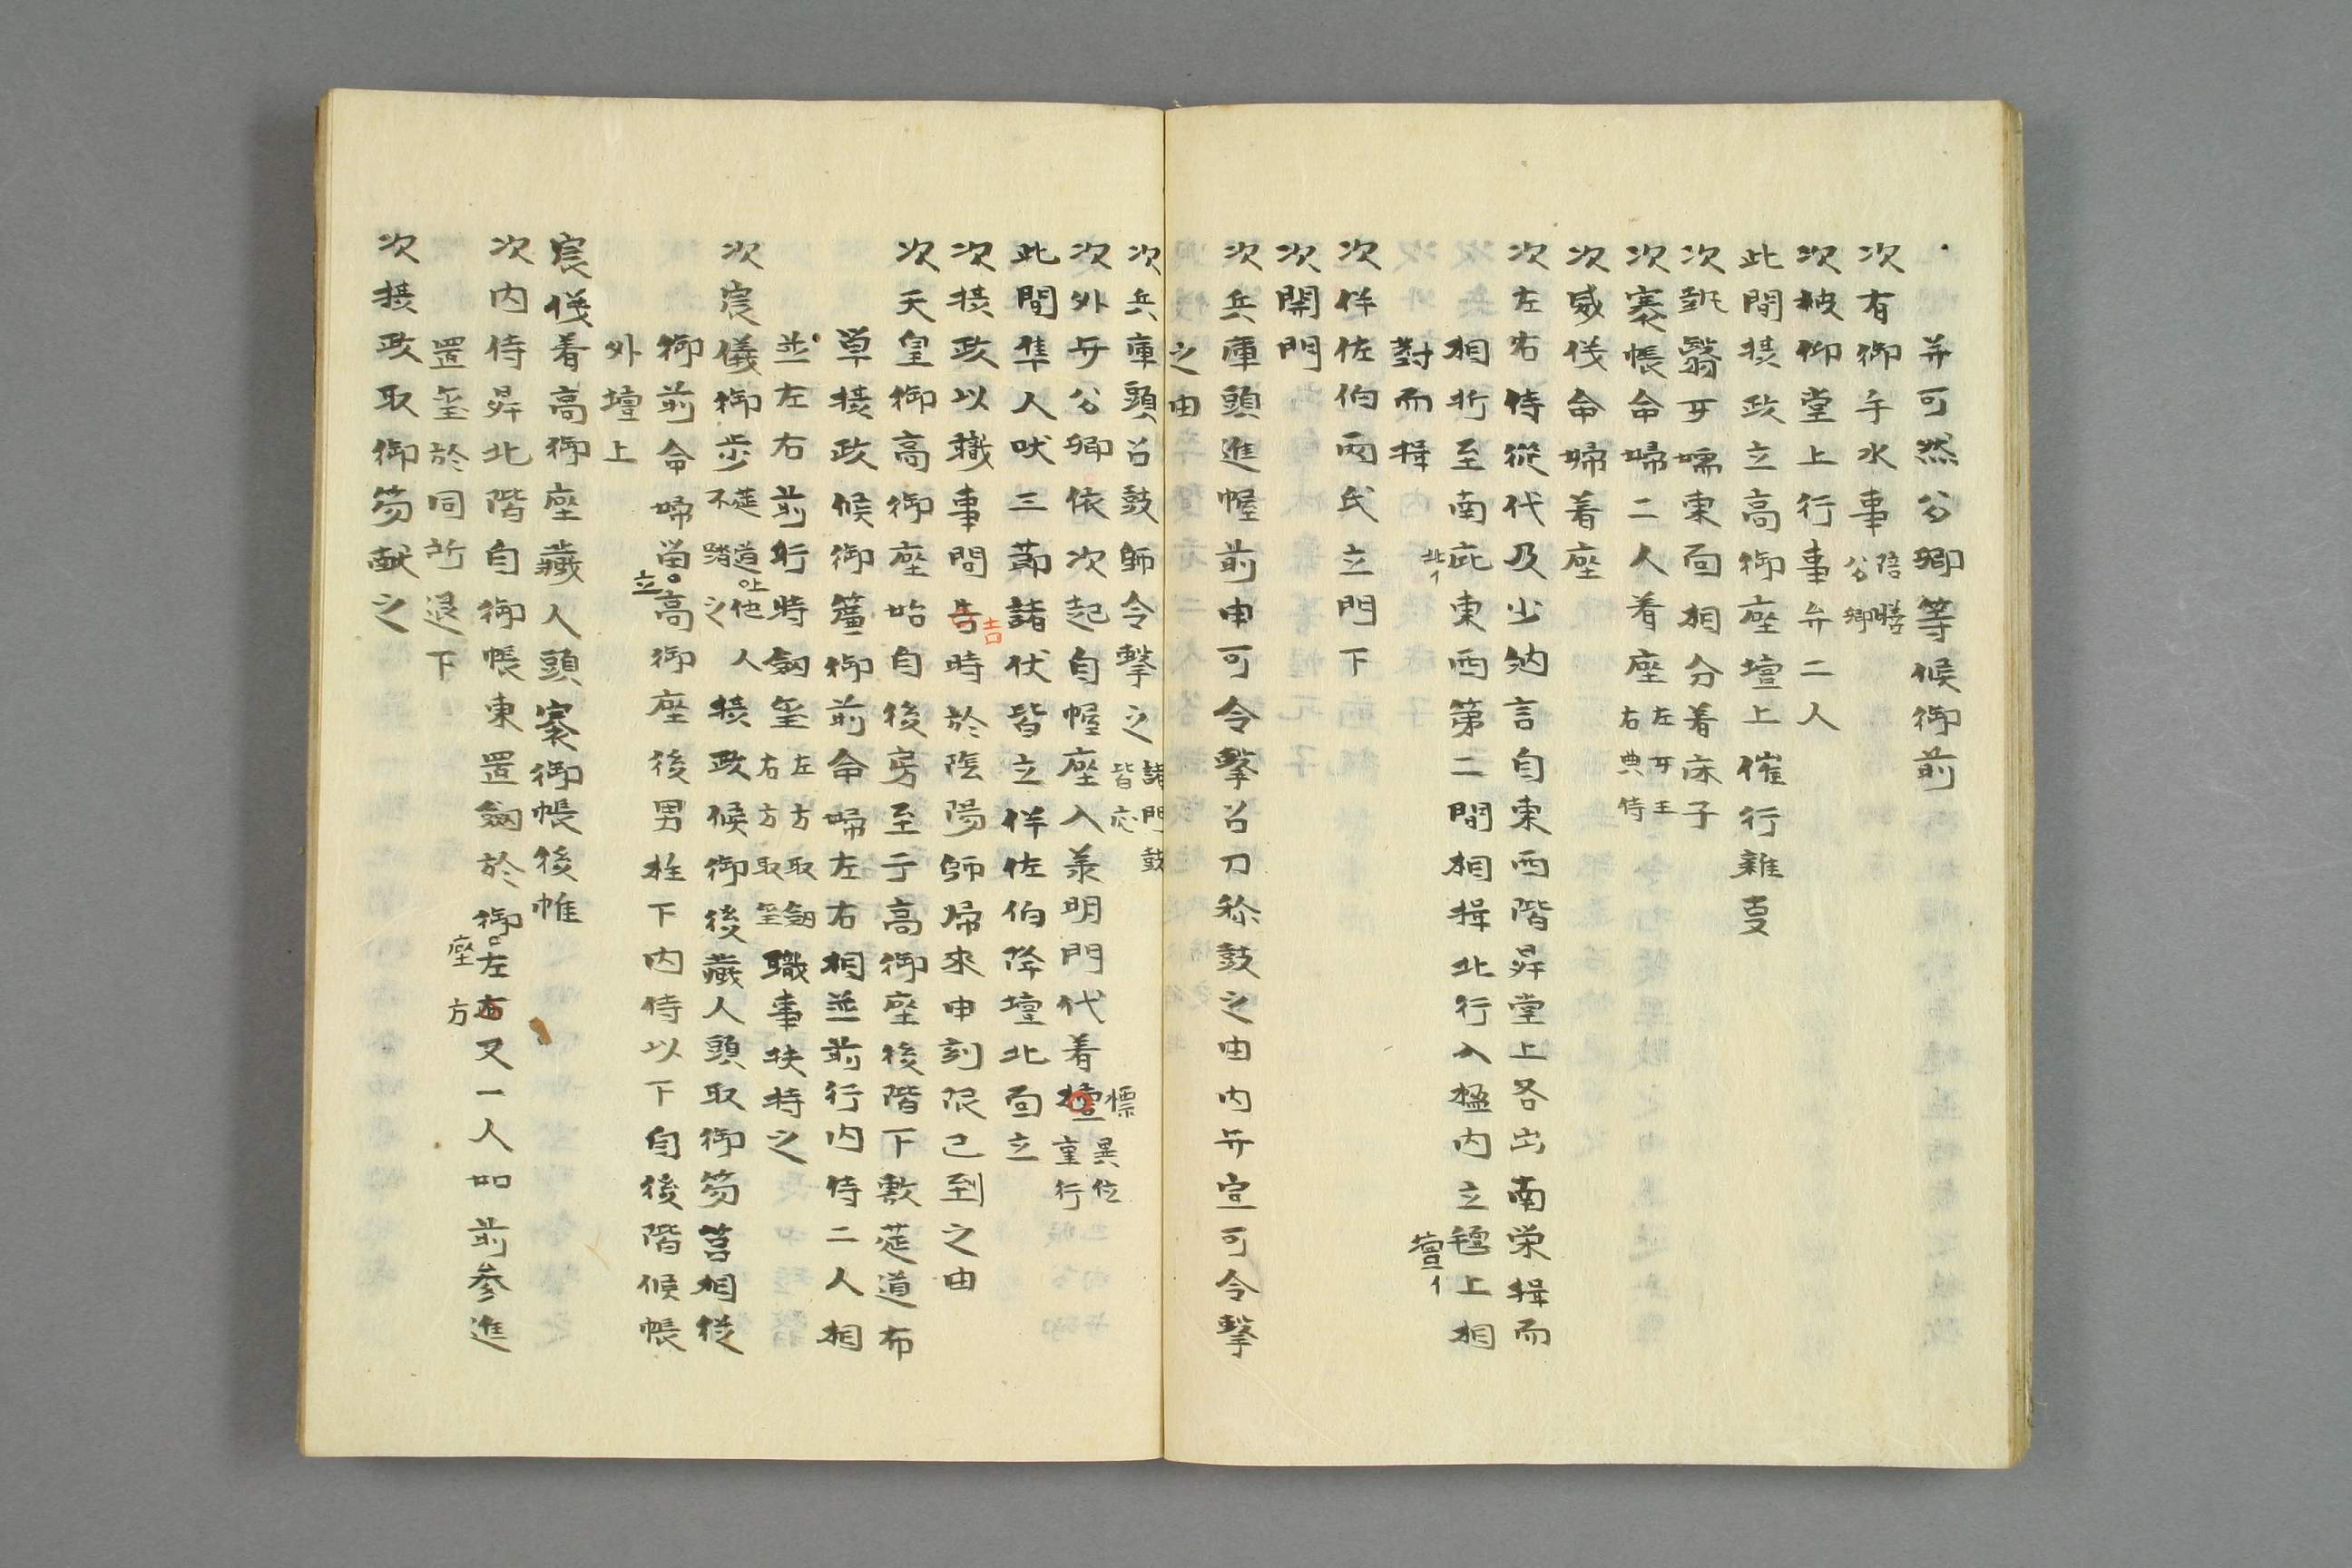 并可然公卿等候御前
次有御手水事 陪膳公卿
次被仰堂上行事弁二人
此間摂政立高御座壇上催行雑事
次執翳女嬬東西相分着床子
次褰帳命婦二人着座 左女王右典侍
次威儀命婦着座
次左右侍従代及少納言自東西階昇堂上各出南栄揖而
相折至南庇東西第二間相揖北行入楹内立壇上相
北イ
壇イ
對而揖
次伴佐伯両氏立門下
次開門
次兵庫頭進幄前申可令撃召刀祢鼓之由内弁宣可令撃
之由
次兵庫頭召鼓師令撃之 諸門鼓皆応
次外弁公卿依次起自幄座入承明門代着標 異位重行
此間隼人吠三節諸伏皆立伴佐伯降壇北面立
次摂政以職事問吉時於陰陽師帰来申刻限已到之由
次天皇御高御座始自後房至于高御座後階下敷莚道布
単摂政候御簾御前命婦左右相並前行内侍二人相
並左右前行時剱璽 左方取剱右方取璽 職事扶持之
次宸儀御歩 不莚道上他人踏之 摂政候御後蔵人頭取御笏筥相従
御前命婦留立高御座後男柱下内侍以下自後階候帳
外壇上
宸儀着高御座蔵人頭褰御帳後帷
次内侍昇北階自御帳東置剱於御座左方又一人如前参進
置璽於同所退下
次摂政取御笏献之